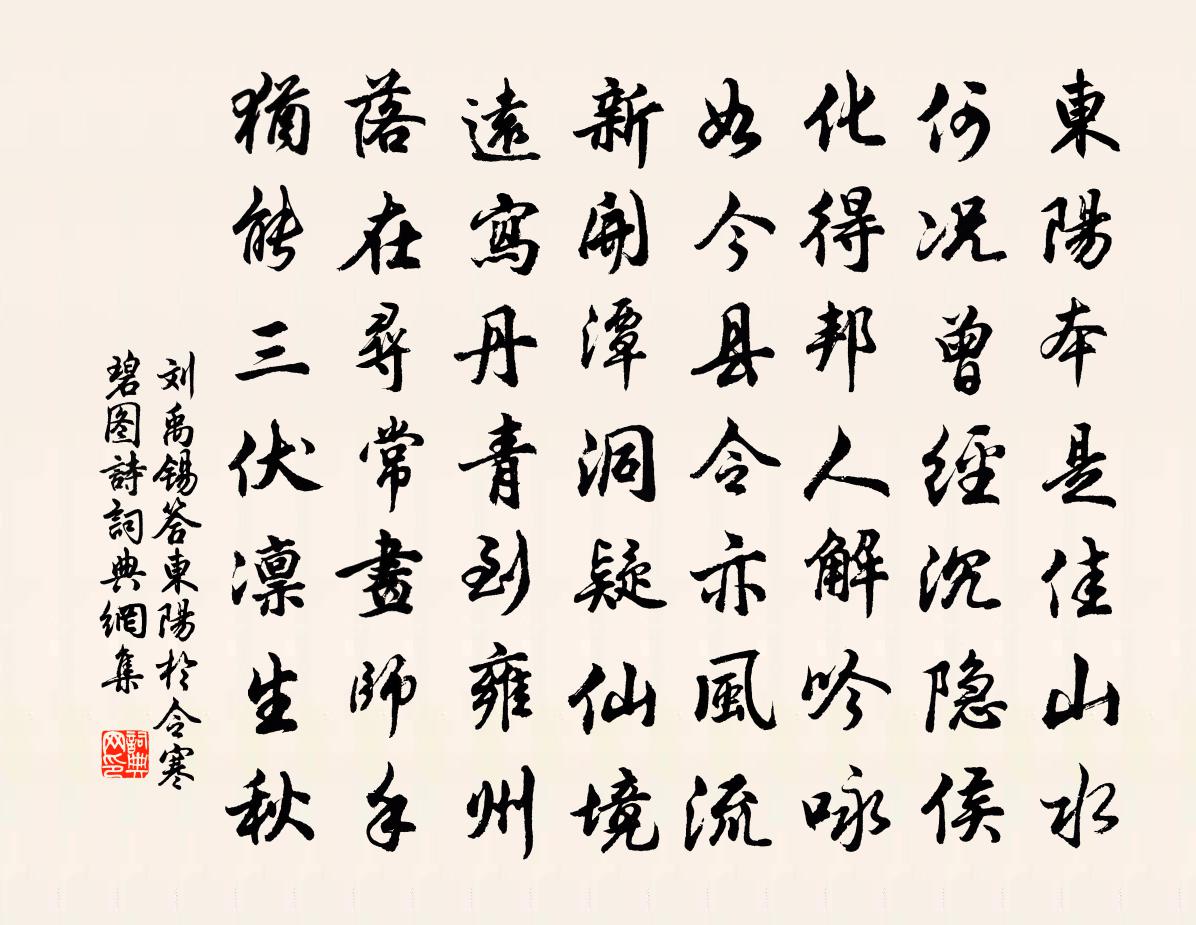 東陽本是佳山水
何況曾經沉隐侯
化得邦人解吟咏
如今县令亦風流
新開潭洞疑仙境
遠寫丹青到雍州
落在尋常畫師手
猶能三伏凛生秋
刘禹锡答東陽於令寒
碧图詩詞典網集
詞典网印